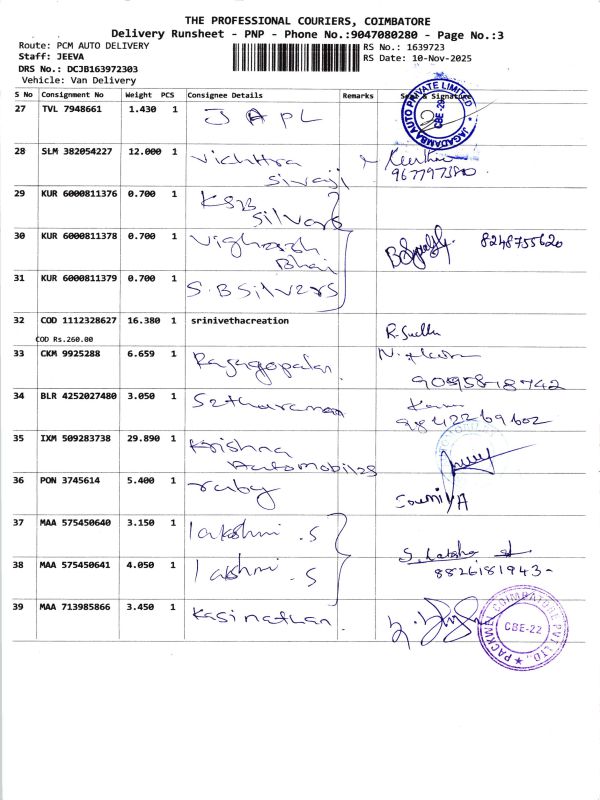 THE PROFESSIONAL COURIERS, COIMBATORE
Delivery Runsheet - PNP - Phone No.:9047080280 - Page No.:3
Route: PCM AUTO DELIVERY
Staff: JEEVA
DRS No.: DCJB163972303
Vehicle: Van Delivery
RS No.: 1639723
RS Date: 10-Nov-2025
S No Consignment No Weight PCS Consignee Details Remarks Seal & Signature
27 TVL 7948661 1.430 1 JAPL
JAGADAMBA AUTO PRIVATE LIMITED CBE-29
28 SLM 382054227 12.000 1 Vichttra
Sivaji
29 KUR 6000811376 0.700 1 KSB
Silvars
30 KUR 6000811378 0.700 1 Vigharsh
Bhai
8248755620
31 KUR 6000811379 0.700 1 S.B Silvers
32 COD 1112328627 16.380 1 srinivethacreation
COD Rs.260.00
33 CKM 9925288 6.659 1 Rajagopalan.
34 BLR 4252027480 3.050 1 Setharaman
9842269602
35 IXM 509283738 29.890 1 Krishna
Automobiles
36 PON 3745614 5.400 1 ruby
Soumiya
37 MAA 575450640 3.150 1 lakshmi .S
38 MAA 575450641 4.050 1 lakshmi .S
8826181943-
39 MAA 713985866 3.450 1 Kasinathan.
COIMBATORE PVT LTD. CBE-22